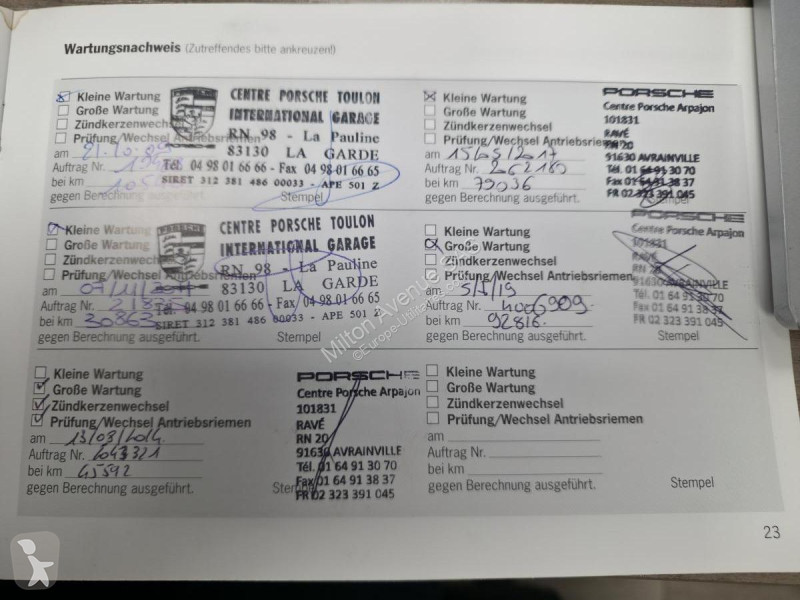 Wartungsnachweis (Zutreffendes bitte ankreuzen!)
Kleine Wartung
Große Wartung
Zündkerzenwechsel
Prüfung/Wechsel Antriebsriemen
am
Auftrag Nr.
bei km
gegen Berechnung ausgeführt. Stempel
CENTRE PORSCHE TOULON
INTERNATIONAL GARAGE
RN 98 - La Pauline
83130 LA GARDE
Tél. 04 98 01 66 66 - Fax 04 98 01 66 65
SIRET 312 381 486 00033 - APE 501 Z
Kleine Wartung
Große Wartung
Zündkerzenwechsel
Prüfung/Wechsel Antriebsriemen
am 07/11/2011
Auftrag Nr.
bei km 30863
gegen Berechnung ausgeführt. Stempel
CENTRE PORSCHE TOULON
INTERNATIONAL GARAGE
RN 98 - La Pauline
83130 LA GARDE
Tél. 04 98 01 66 66 - Fax 04 98 01 66 65
SIRET 312 381 486 00033 - APE 501 Z
Kleine Wartung
Große Wartung
Zündkerzenwechsel
Prüfung/Wechsel Antriebsriemen
am 13/03/2014
Auftrag Nr. 6043321
bei km 45592
gegen Berechnung ausgeführt. Stempel
PORSCHE
Centre Porsche Arpajon
101831
RAVÉ
RN 20
91630 AVRAINVILLE
Tél. 01 64 91 30 70
Fax 01 64 91 38 37
FR 02 323 391 045
Kleine Wartung
Große Wartung
Zündkerzenwechsel
Prüfung/Wechsel Antriebsriemen
am 15/03/2017
Auftrag Nr.
bei km 79036
gegen Berechnung ausgeführt. Stempel
PORSCHE
Centre Porsche Arpajon
101831
RAVÉ
RN 20
91630 AVRAINVILLE
Tél. 01 64 91 30 70
Fax 01 64 91 38 37
FR 02 323 391 045
Kleine Wartung
Große Wartung
Zündkerzenwechsel
Prüfung/Wechsel Antriebsriemen
am
Auftrag Nr. 4006909
bei km 92816
gegen Berechnung ausgeführt. Stempel
PORSCHE
Centre Porsche Arpajon
101831
RAVÉ
RN 20
91630 AVRAINVILLE
Tél. 01 64 91 30 70
Fax 01 64 91 38 37
FR 02 323 391 045
Kleine Wartung
Große Wartung
Zündkerzenwechsel
Prüfung/Wechsel Antriebsriemen
am
Auftrag Nr.
bei km
gegen Berechnung ausgeführt. Stempel
23
Milton Avenue